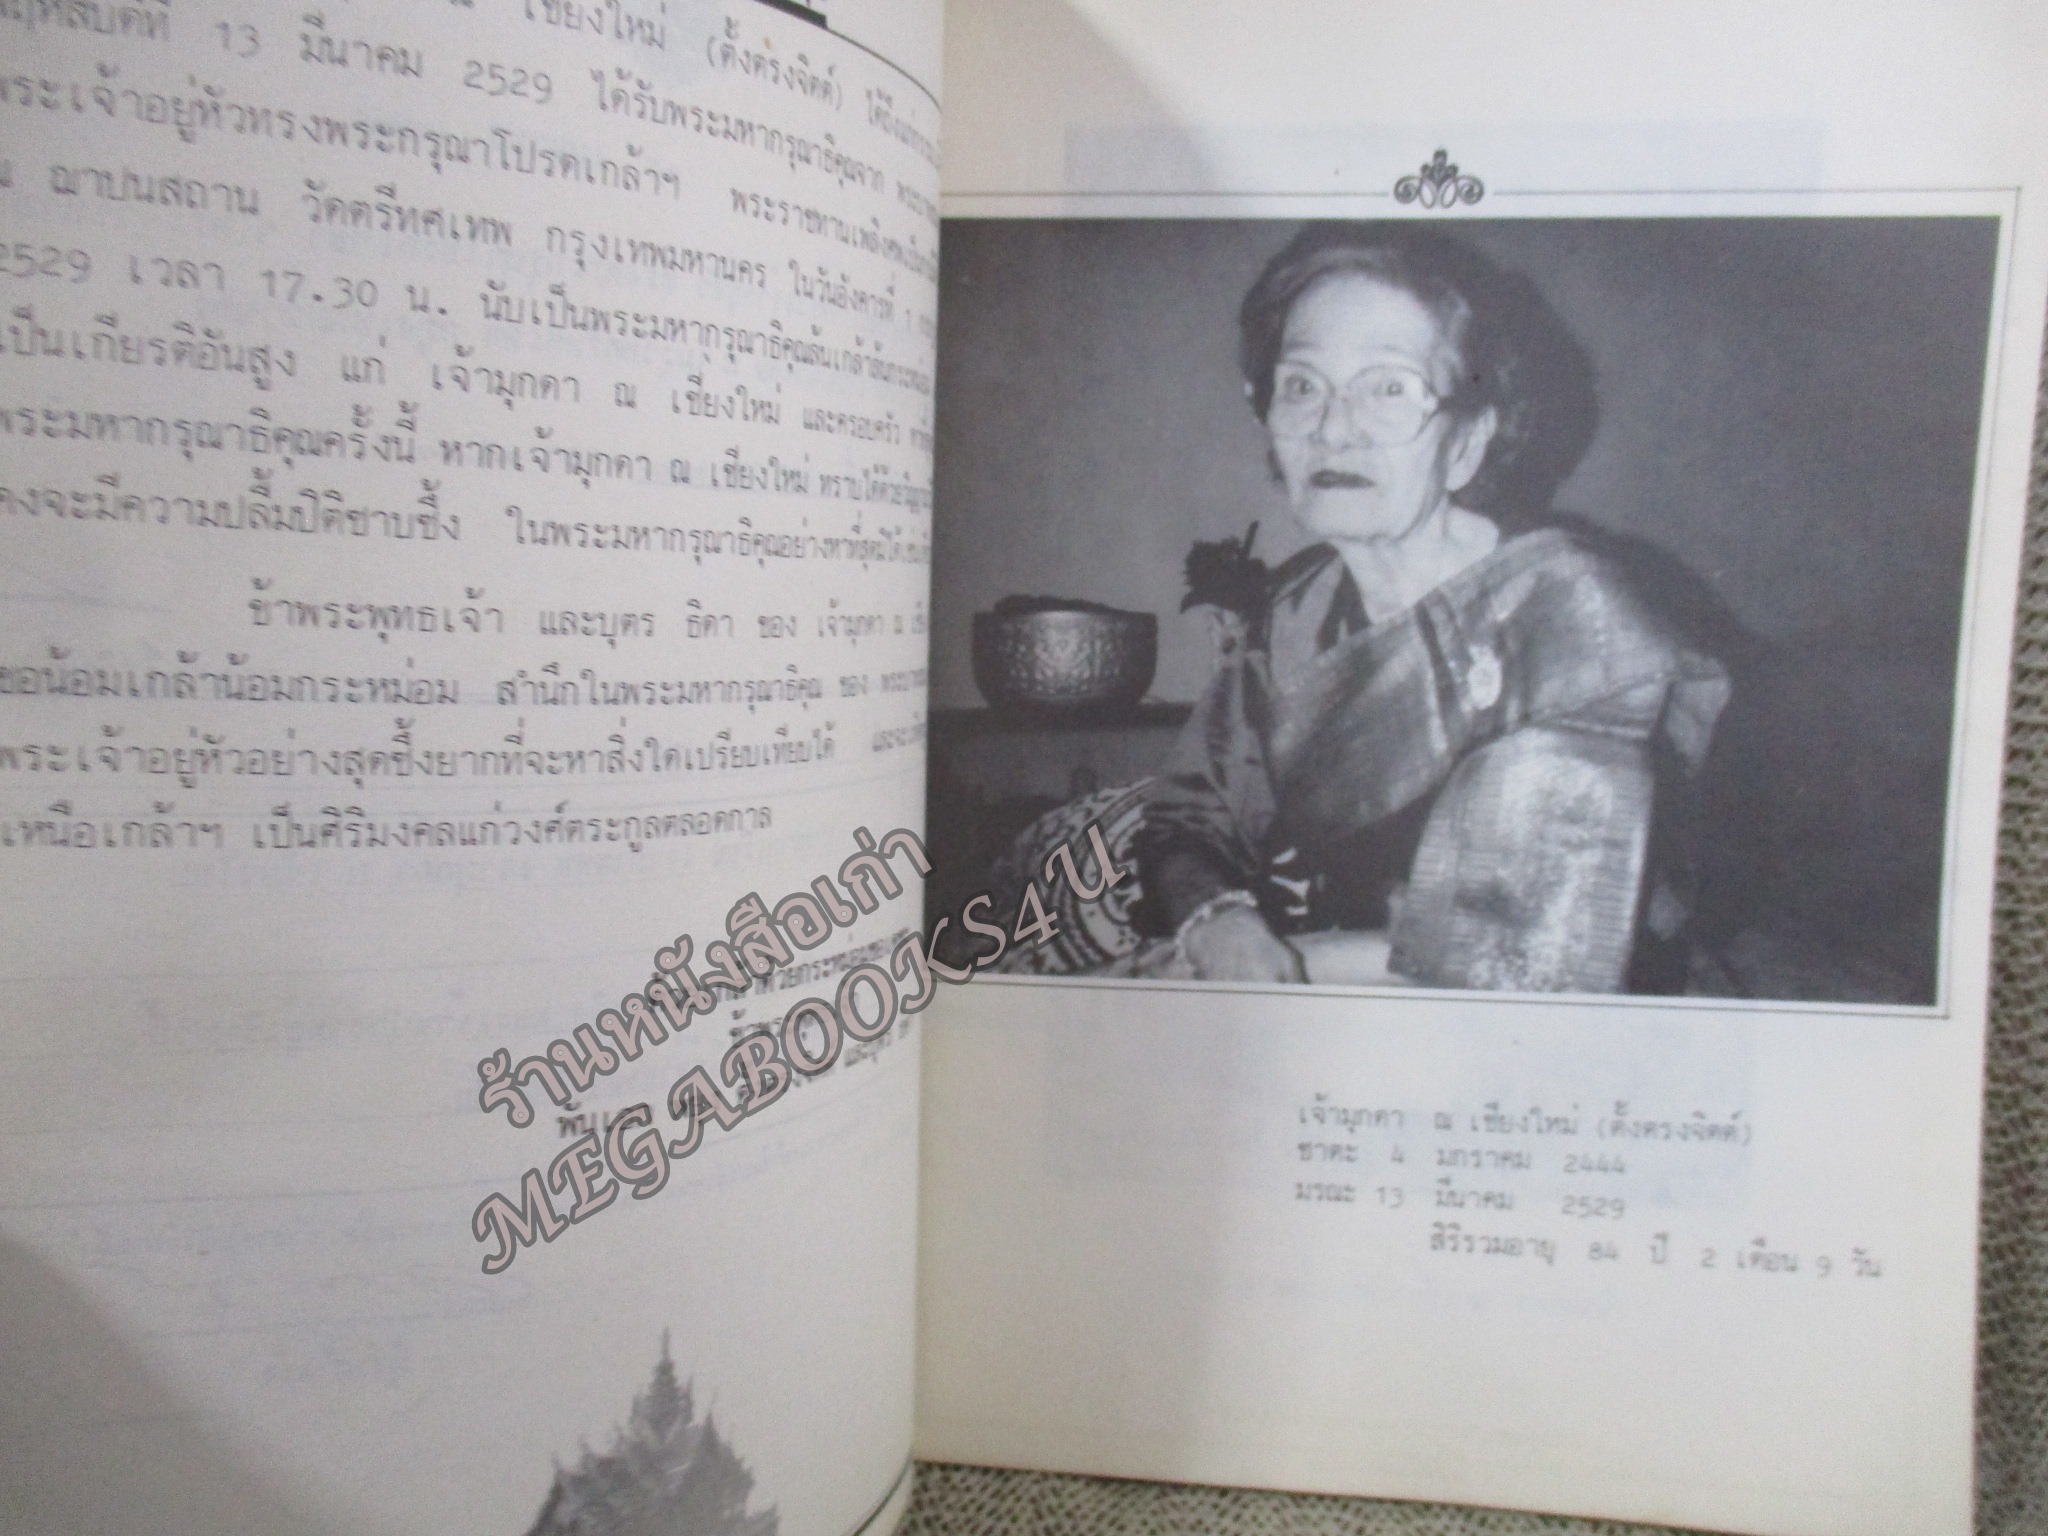 ณ เชียงใหม่ (ตั้งตรงจิตต์)
ที่ 13 มีนาคม 2529 ได้รับพระมหากรุณาธิคุณจาก
พระเจ้าอยู่หัวทรงพระกรุณาโปรดเกล้าฯ พระราชทานเพลิงศพ
ณ ฌาปนสถาน วัดตรีทศเทพ กรุงเทพมหานคร ในวันอังคารที่ 1
2529 เวลา 17.30 น. นับเป็นพระมหากรุณาธิคุณล้นเกล้าล้นกระหม่อม
เป็นเกียรติอันสูง แก่ เจ้ามุกดา ณ เชียงใหม่ และครอบครัว
พระมหากรุณาธิคุณครั้งนี้ หากเจ้ามุกดา ณ เชียงใหม่ ทราบได้ด้วย
คงจะมีความปลื้มปิติซาบซึ้ง ในพระมหากรุณาธิคุณอย่างหาที่สุดมิได้
ข้าพระพุทธเจ้า และบุตร ธิดา ของ เจ้ามุกดา ณ
ขอน้อมเกล้าน้อมกระหม่อม สำนึกในพระมหากรุณาธิคุณ ของ
พระเจ้าอยู่หัวอย่างสุดซึ้งยากที่จะหาสิ่งใดเปรียบเทียบได้
เหนือเกล้าฯ เป็นศิริมงคลแก่วงศ์ตระกูลตลอดกาล
ร้านหนังสือเก่า
MEGABOOKS4U
เจ้ามุกดา ณ เชียงใหม่ (ตั้งตรงจิตต์)
ชาตะ 4 มกราคม 2444
มรณะ 13 มีนาคม 2529
สิริรวมอายุ 84 ปี 2 เดือน 9 วัน